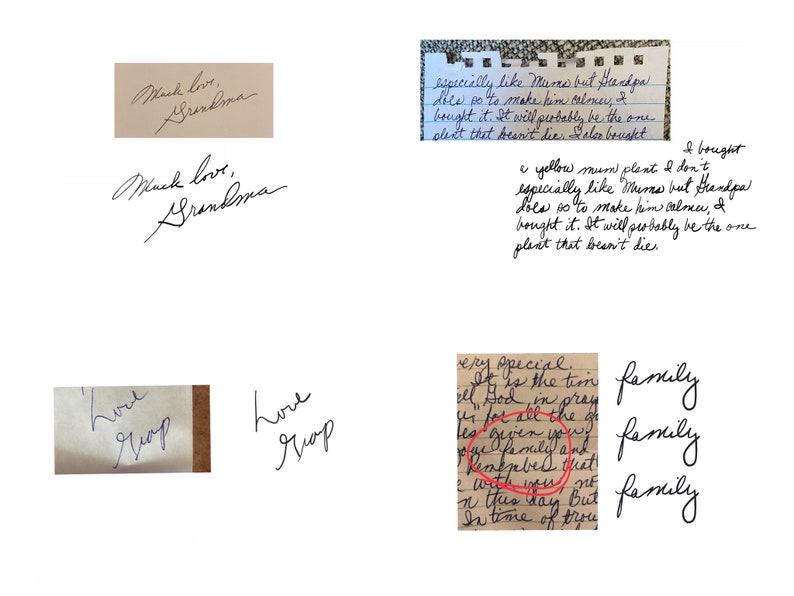 Much love,
Grandma
Much love,
Grandma
especially like Mums but Grandpa
does so to make him calmer, I
bought it. It will probably be the one
plant that doesn't die. I also bought
I bought
a yellow mum plant I don't
especially like Mums but Grandpa
does so to make him calmer, I
bought it. It will probably be the one
plant that doesn't die.
Love
Gramp
Love
Gramp
very special.
It is the tim
ell God in pray
for all the
es given you,
your family and
Remember that
e with you, no
n this day But
In time of trou
family
family
family